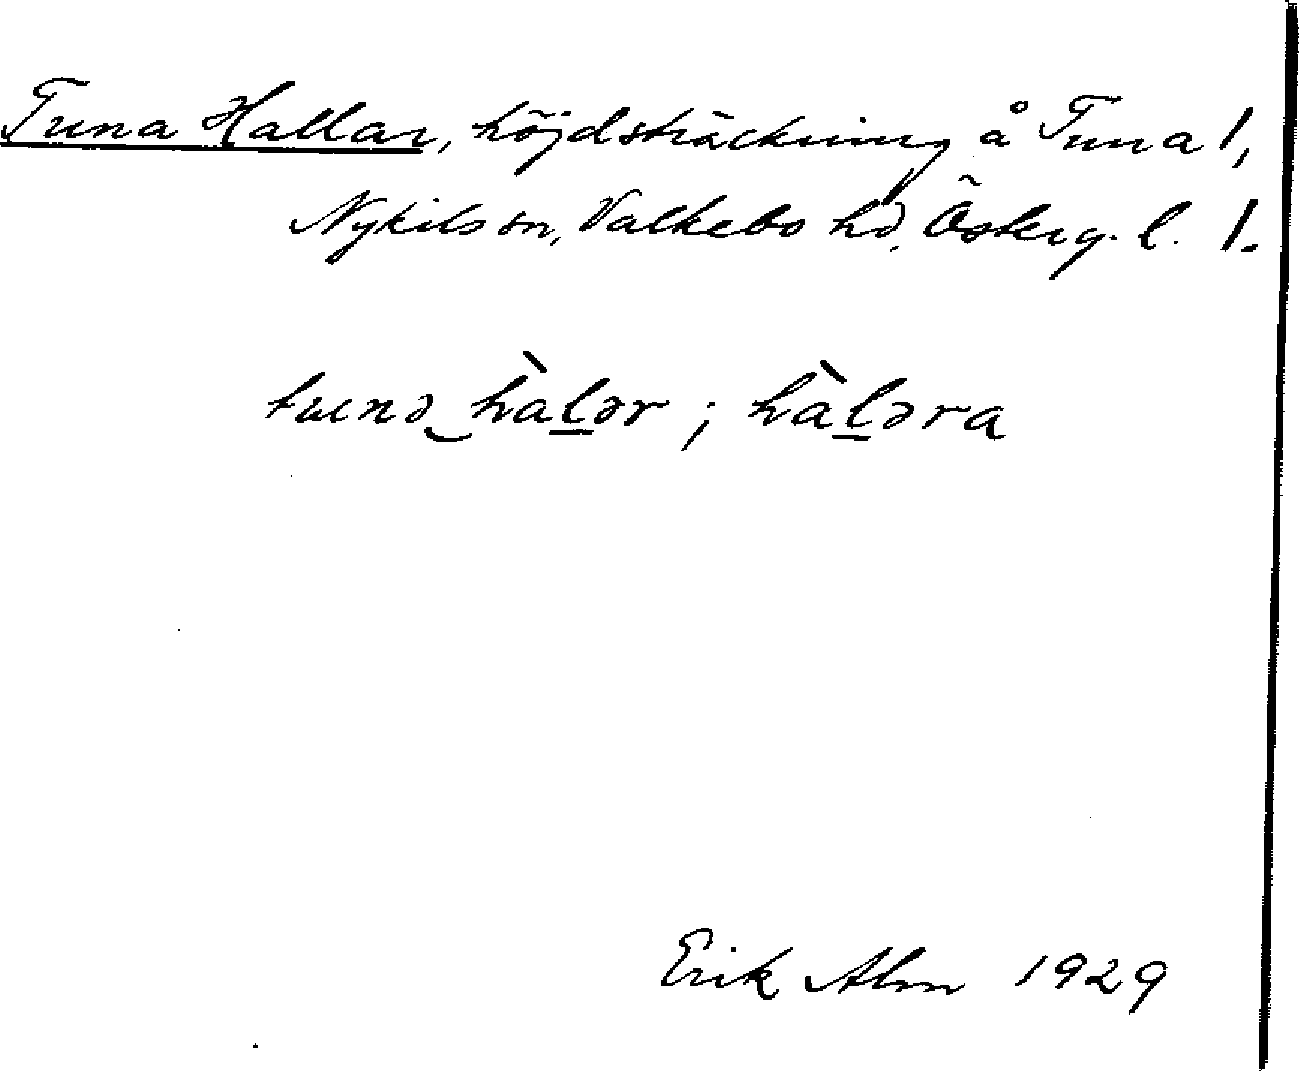 Tuna Hallar, höjdsträckning å Tuna 1,
Nykils sn, Valkebo hd, Österg. l. 1.
tuenə‿hàl̲ər ; hàl̲əra
Erik Alm 1929